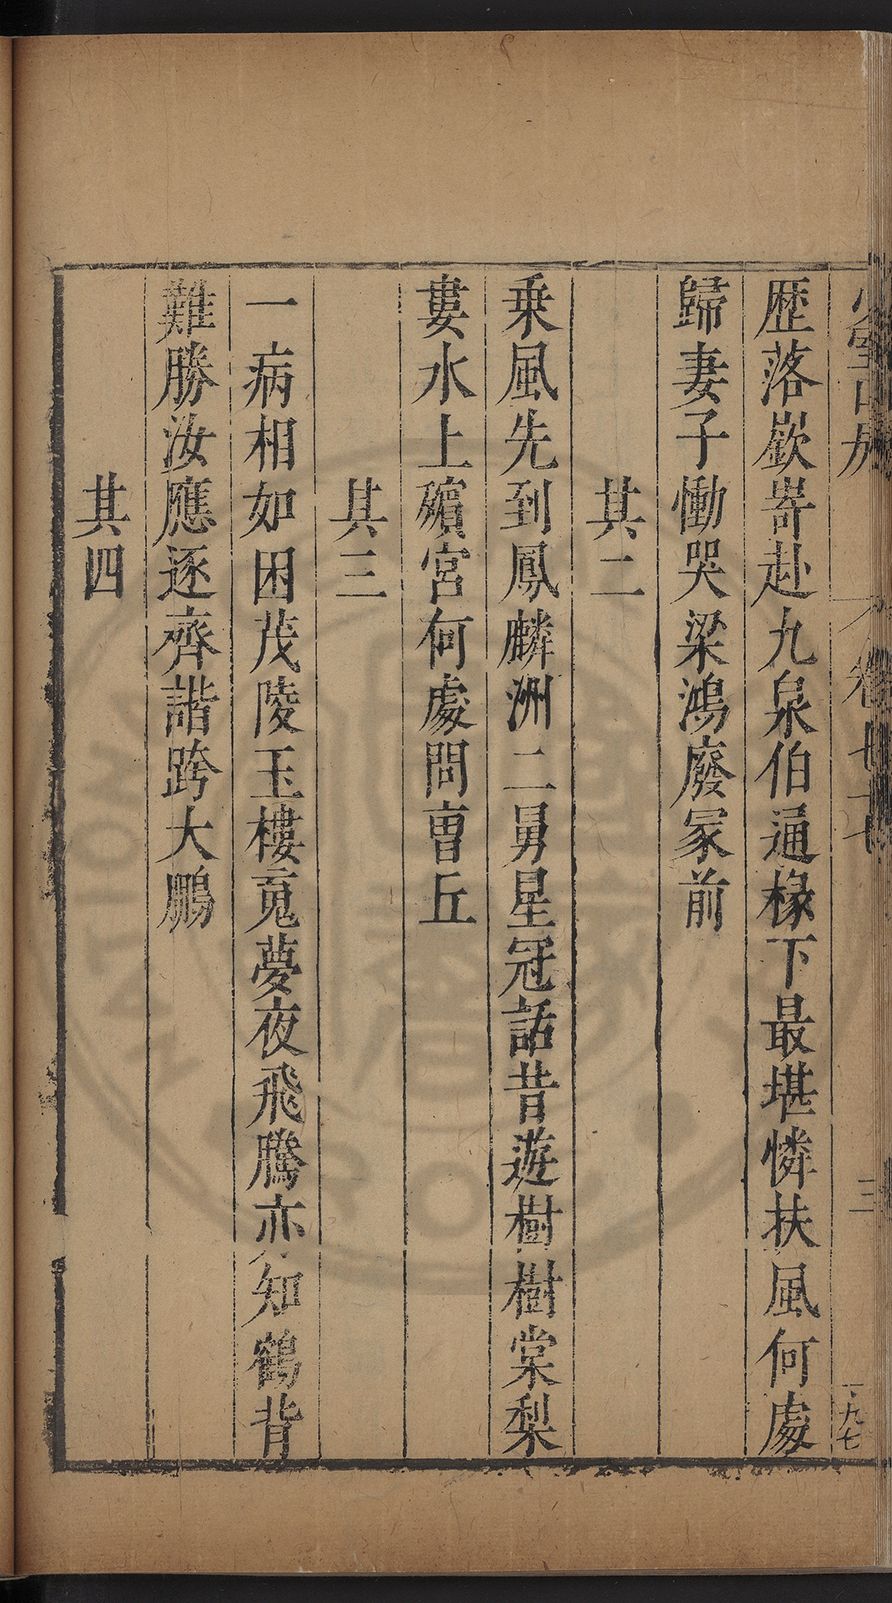 歴落嶔㟢赴九泉伯通椽下最堪憐扶風何處
歸妻子慟哭梁鴻廢冢前
其二
乗風先到鳳麟洲二舅星冠話昔遊樹樹棠梨
婁水上殯宮何處問曺丘
其三
一病相如困茂陵玉樓䰟夢夜飛騰亦知鶴背
難勝汝應逐齊諧跨大鵬
其四
少室山房
卷七十
三
一九七